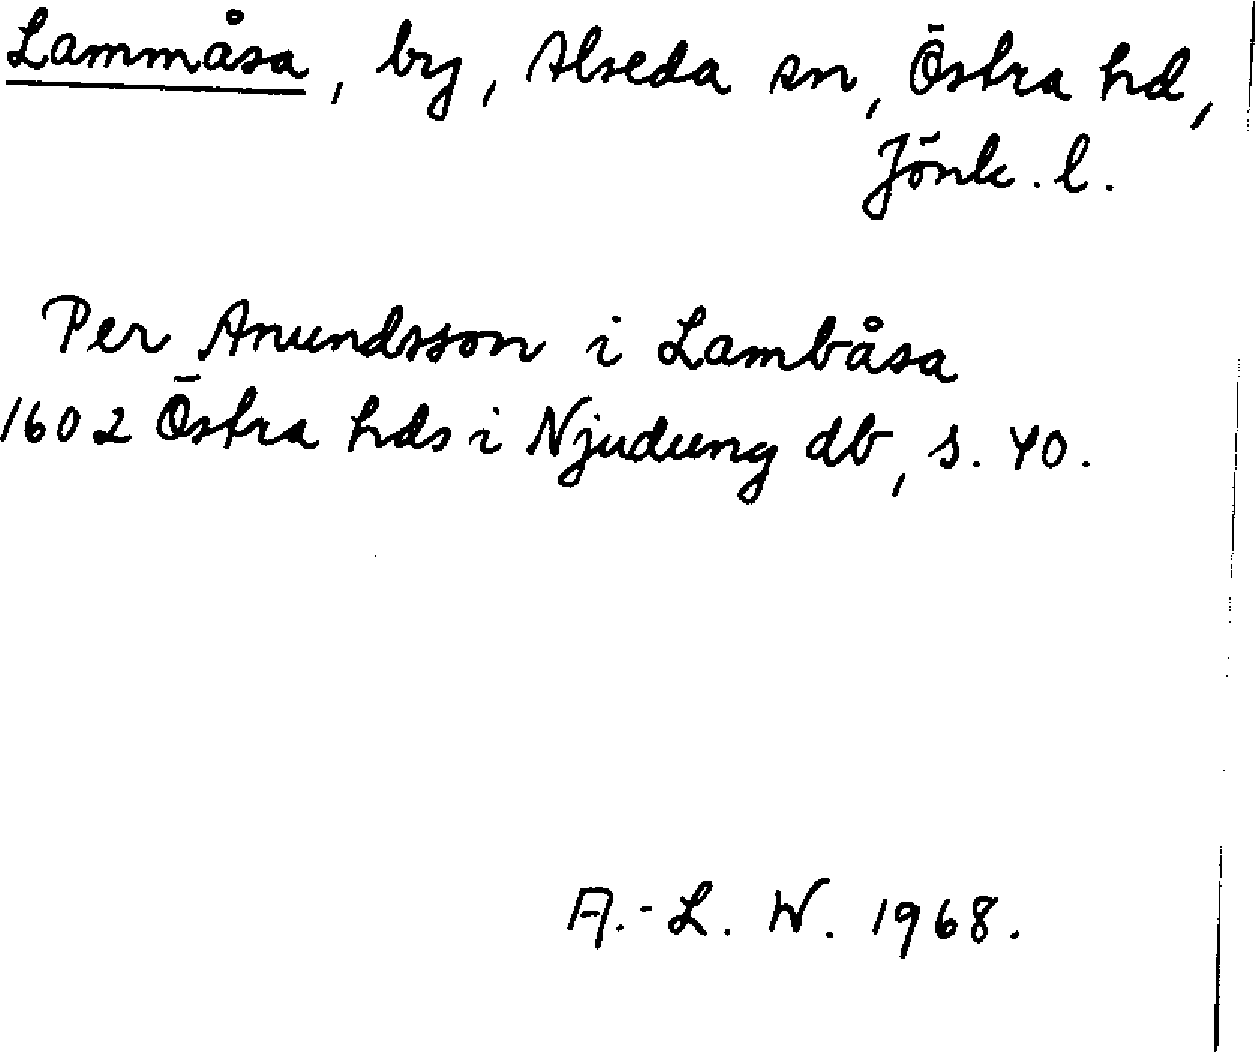 Lammåsa, by, Alseda sn, Östra hd,
Jönk. l.
Per Anundsson i Lambåsa
1602 Östra hds i Njudung db, s. 40.
A.-L. W. 1968.